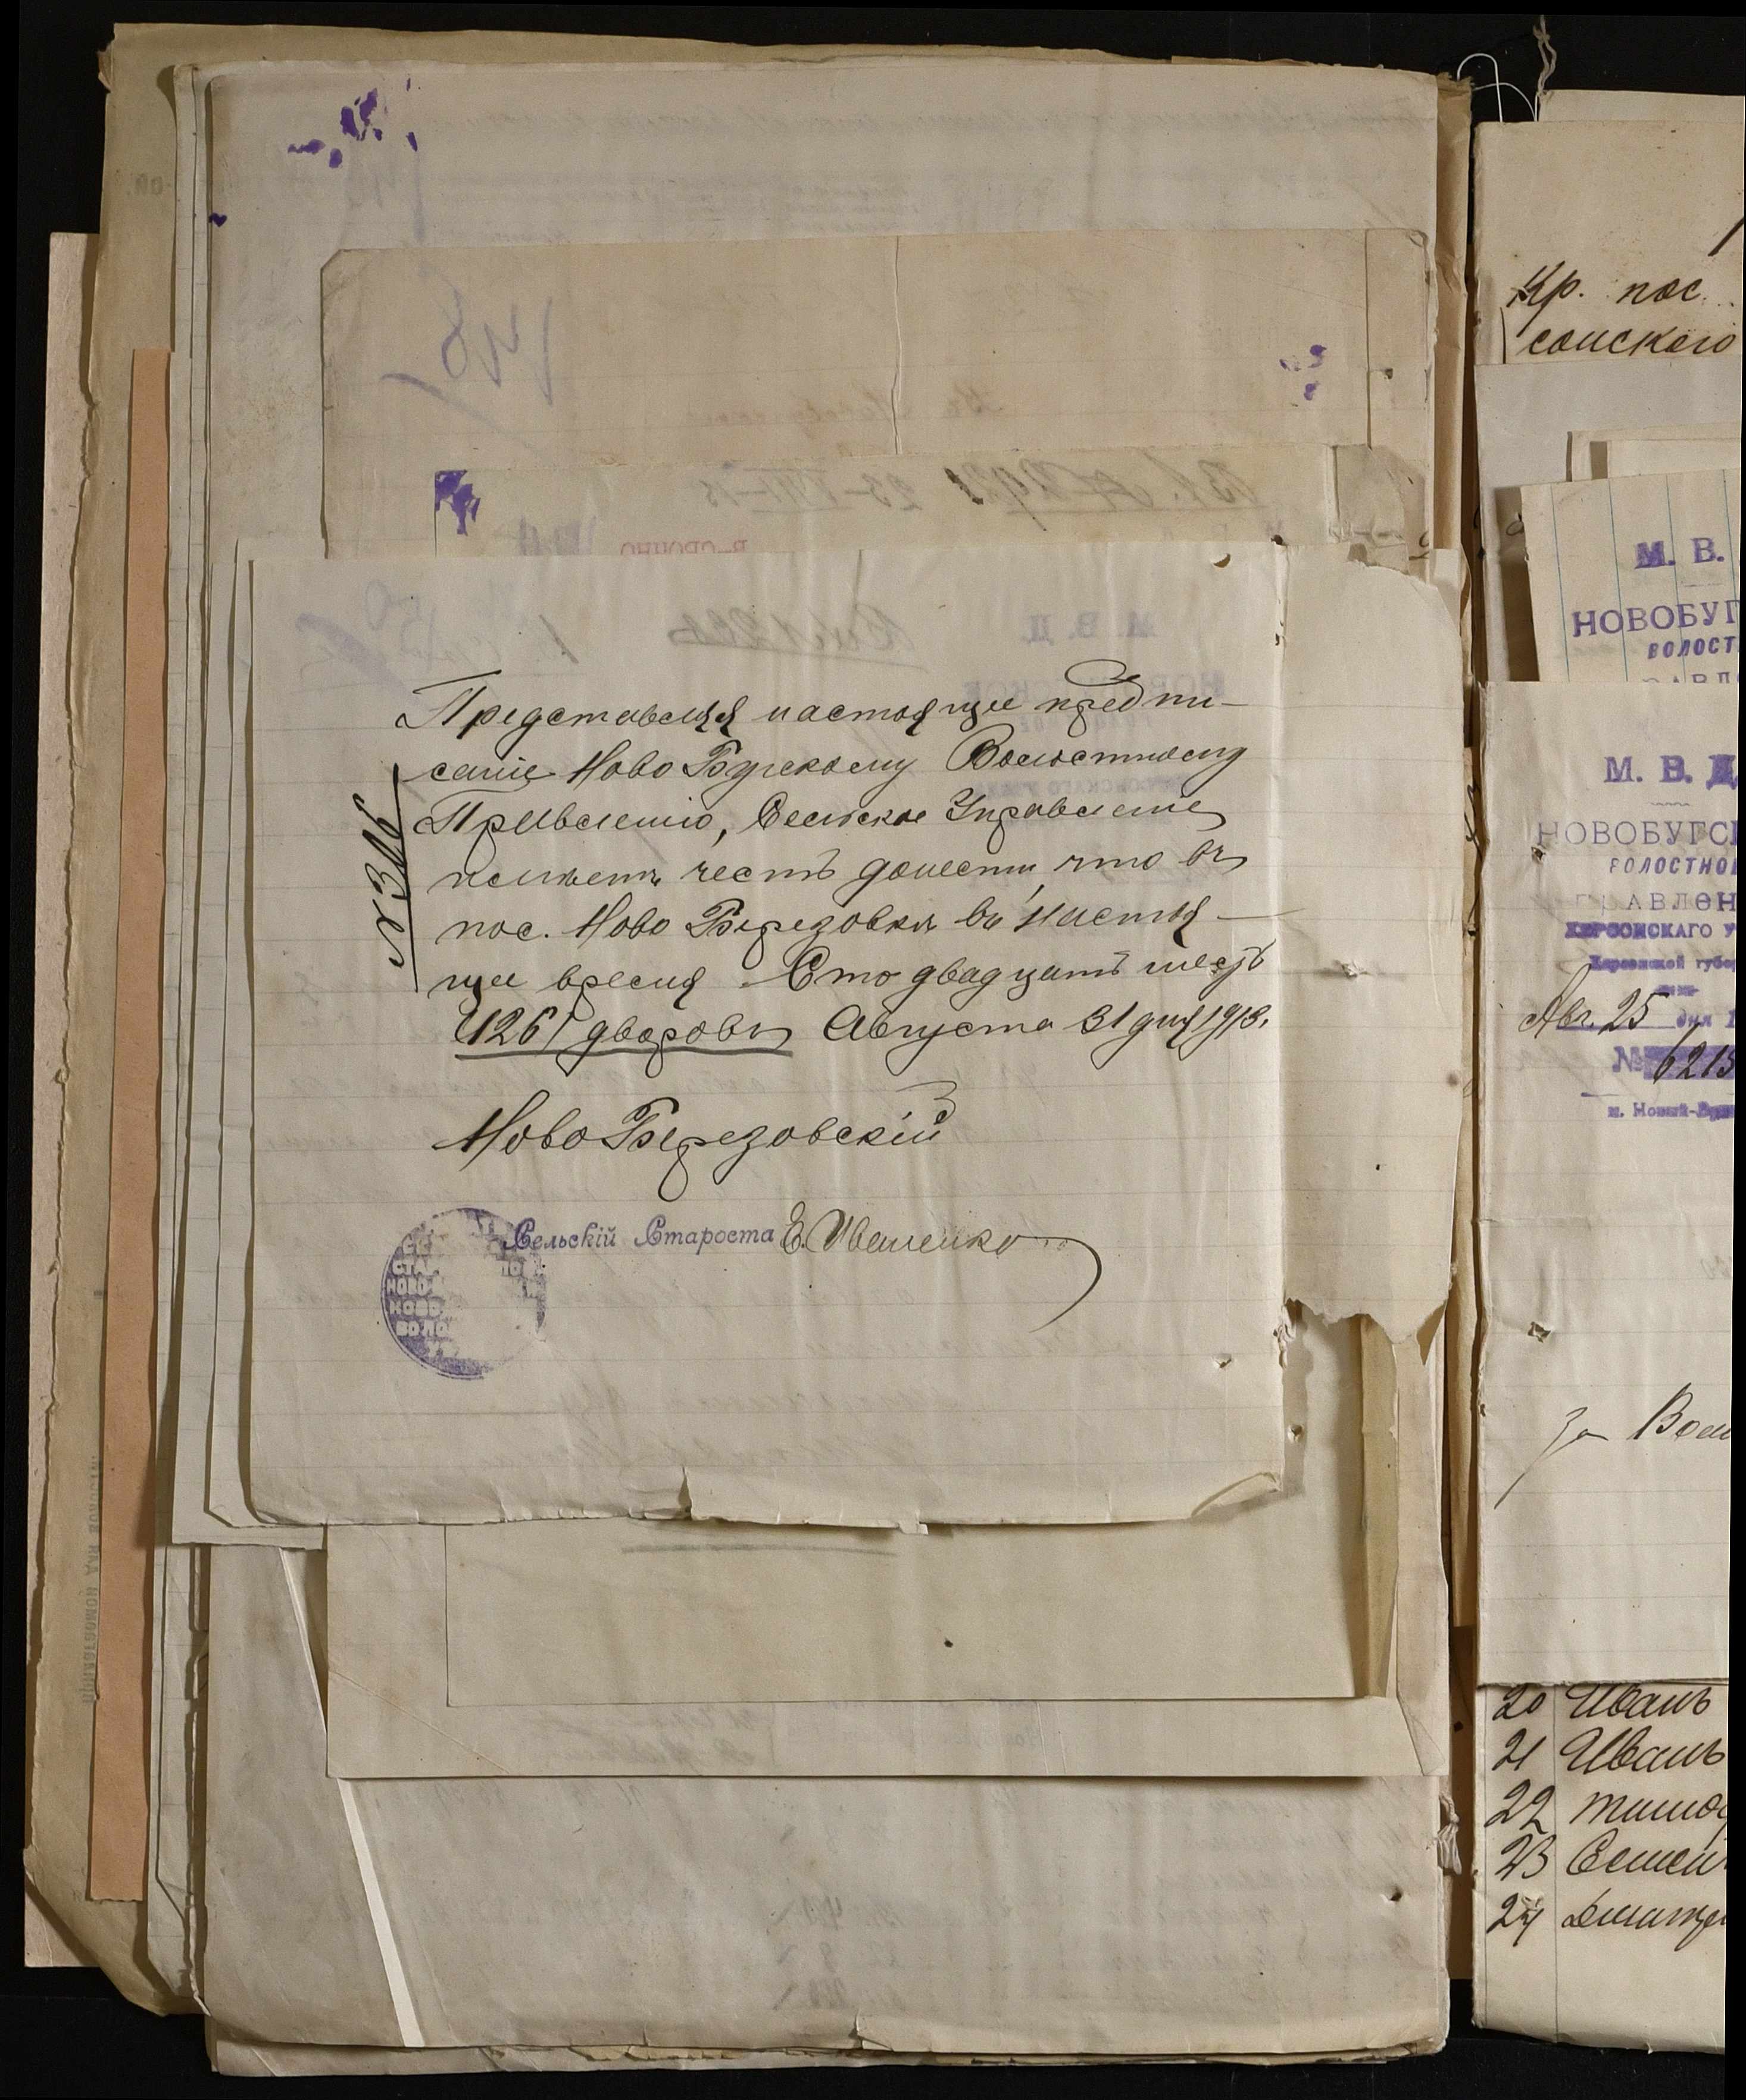 Представляя настоящее предпи-
саніе Ново Бугскому Волостному
Правленію, Сельское Управленіе
имѣетъ честь донести, что въ
пос. Ново Березовка въ настоя-
щее время Сто двадцать шесть
/126/ дворовъ Августа 31 дня 1913.
№ 306
Ново Березовскій
Сельскій Староста Е. Иваненко
СТА
НОВО
НОВО
ВОЛО
Кр. пос.
сонского
М. В.
НОВОБУГ
ВОЛОСТ
М. В. Д
НОВОБУГС
ВОЛОСТНО
ПРАВЛЕН
ХЕРСОНСКАГО У
Херсонской губе
Авг. 25 дня 1
№ 6215
м. Новый-Буг
За Вол
20 Иванъ
21 Иванъ
22 Тимо
23 Семен
24 Дмитр